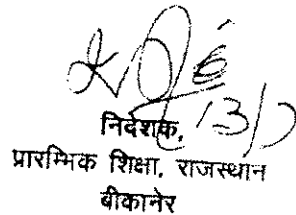 13/7
निदेशक,
प्रारम्भिक शिक्षा, राजस्थान
बीकानेर